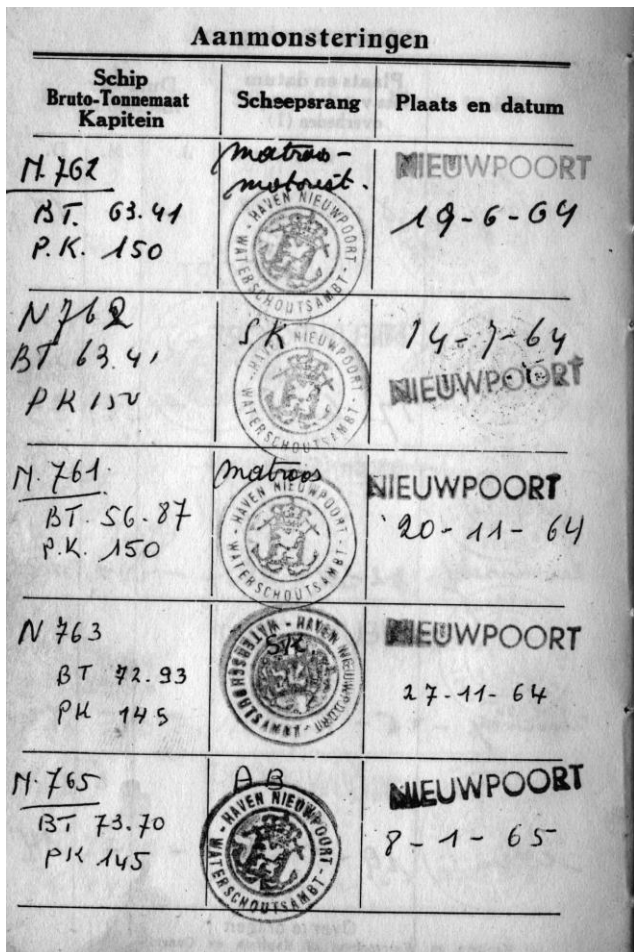 Aanmonsteringen
Schip
Bruto-Tonnemaat
Kapitein
Scheepsrang
Plaats en datum
N. 762
BT. 63.41
P.K. 150
matroos-
motorist.
HAVEN NIEUWPOORT - WATERSCHOUTSAMBT -
NIEUWPOORT
19-6-64
N 762
BT 63.41
PK 150
SK
HAVEN NIEUWPOORT - WATERSCHOUTSAMBT -
14-7-64
NIEUWPOORT
N. 761.
BT. 56-87
P.K. 150
matroos
HAVEN NIEUWPOORT - WATERSCHOUTSAMBT -
NIEUWPOORT
20-11-64
N 763
BT 72.93
PK 145
SK
HAVEN NIEUWPOORT - WATERSCHOUTSAMBT -
NIEUWPOORT
27-11-64
N. 765
BT 73.70
PK 145
AB
HAVEN NIEUWPOORT - WATERSCHOUTSAMBT -
NIEUWPOORT
8-1-65